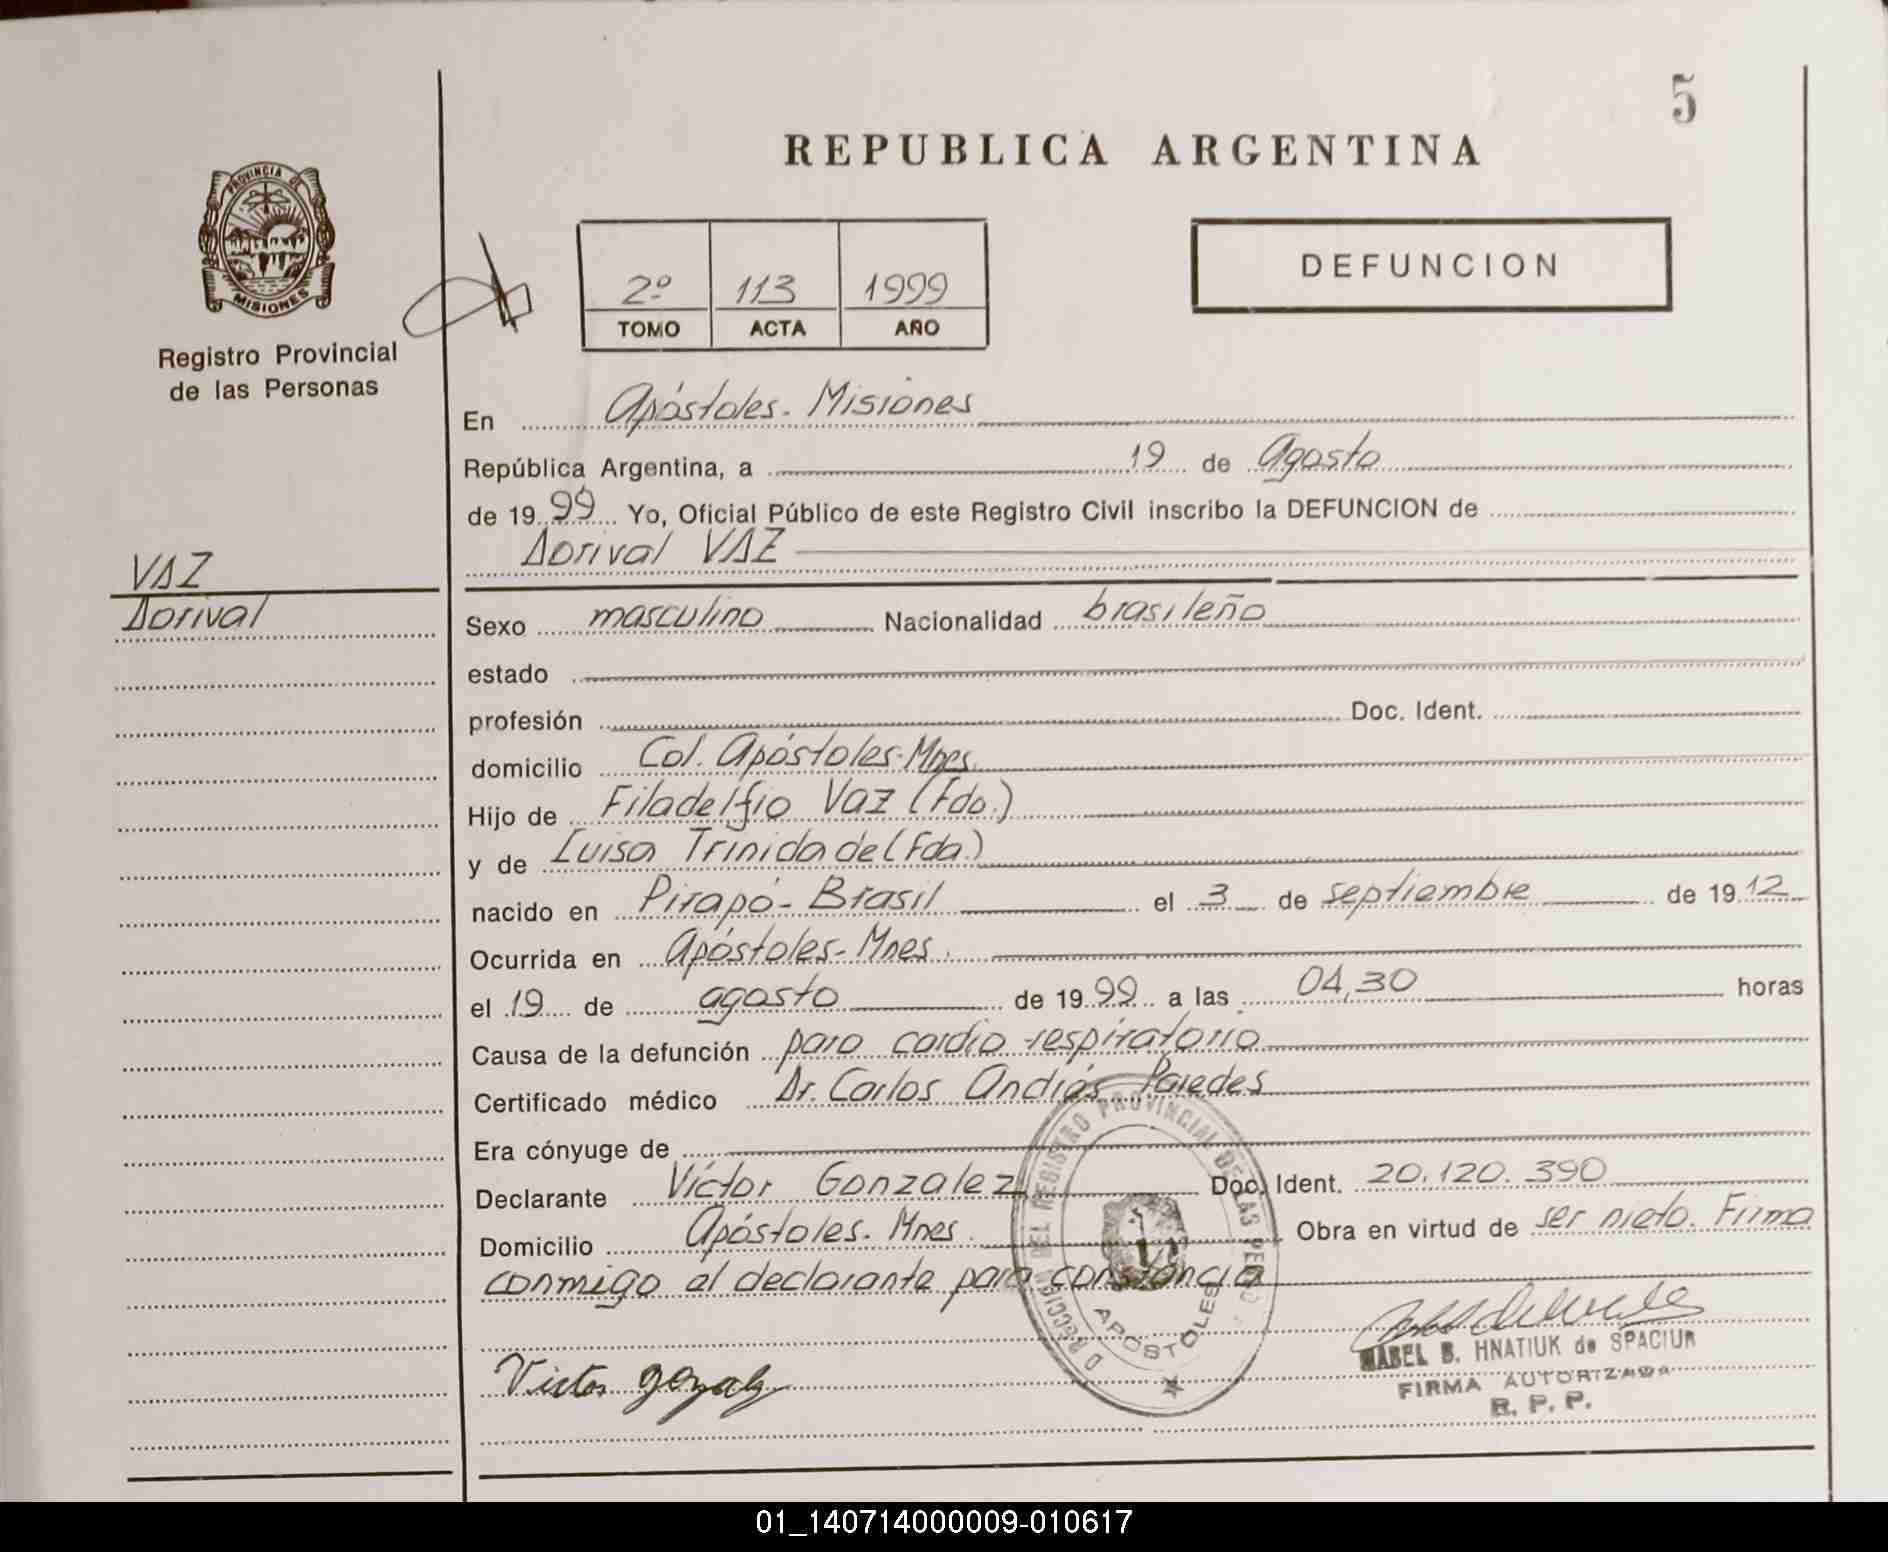 5
REPUBLICA ARGENTINA
PROVINCIA DE
MISIONES
Registro Provincial
de las Personas
2º 113 1999
TOMO ACTA AÑO
DEFUNCION
En Apóstoles - Misiones
República Argentina, a 19 de Agosto
de 1999 Yo, Oficial Público de este Registro Civil inscribo la DEFUNCION de
Dorival VAZ
VAZ
Dorival
Sexo masculino Nacionalidad brasileño
estado
profesión Doc. Ident.
domicilio Col. Apóstoles - Mnes.
Hijo de Filadelfio Vaz (Fdo.)
y de Luisa Trinidade (Fda.)
nacido en Pirapó - Brasil el 3 de septiembre de 1912
Ocurrida en Apóstoles - Mnes.
el 19 de agosto de 1999 a las 04,30 horas
Causa de la defunción paro cardio respiratorio
Certificado médico Dr. Carlos Andrés Paredes
Era cónyuge de
Declarante Víctor Gonzalez Doc. Ident. 20.120.390
Domicilio Apóstoles. Mnes. Obra en virtud de ser nieto. Firma
conmigo el declarante para constancia
DIRECCION DEL REGISTRO PROVINCIAL DE LAS PERS
APOSTOLES
Victor Gonzalez
MABEL B. HNATIUK de SPACIUK
FIRMA AUTORIZADA
R. P. P.
01_140714000009-010617